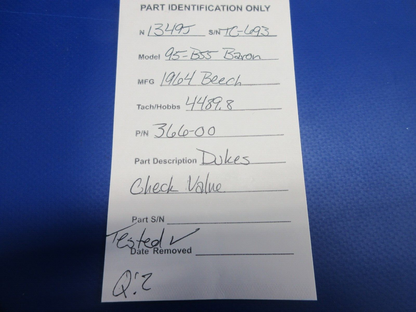 PART IDENTIFICATION ONLY
N 13495 S/N TC-693
Model 95-B55 Baron
MFG 1964 Beech
Tach/Hobbs 4489.8
P/N 366-00
Part Description Dukes
Check Valve
Part S/N
Tested ✓
Date Removed
Q:2